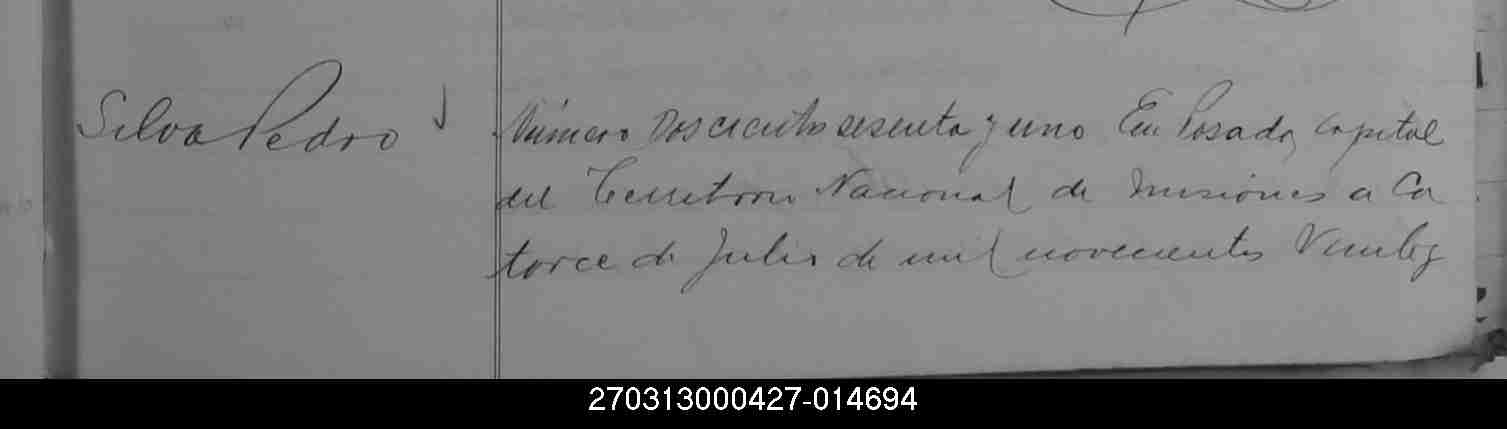 Silva Pedro
Número Doscientos sesenta y uno En Posadas, Capital
del Territorio Nacional de Misiones a Ca
torce de Julio de mil novecientos Veinte y
270313000427-014694